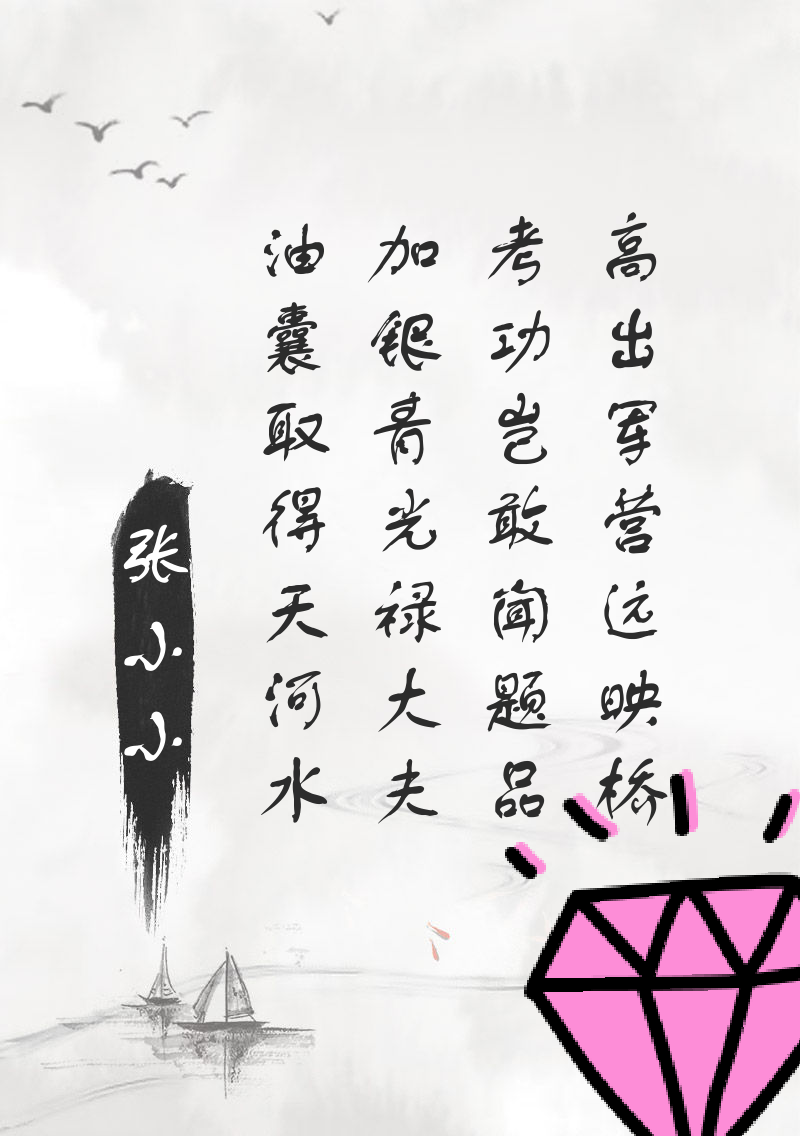 高出军营远映桥
考功岂敢闻题品
加银青光禄大夫
油囊取得天河水
张小小